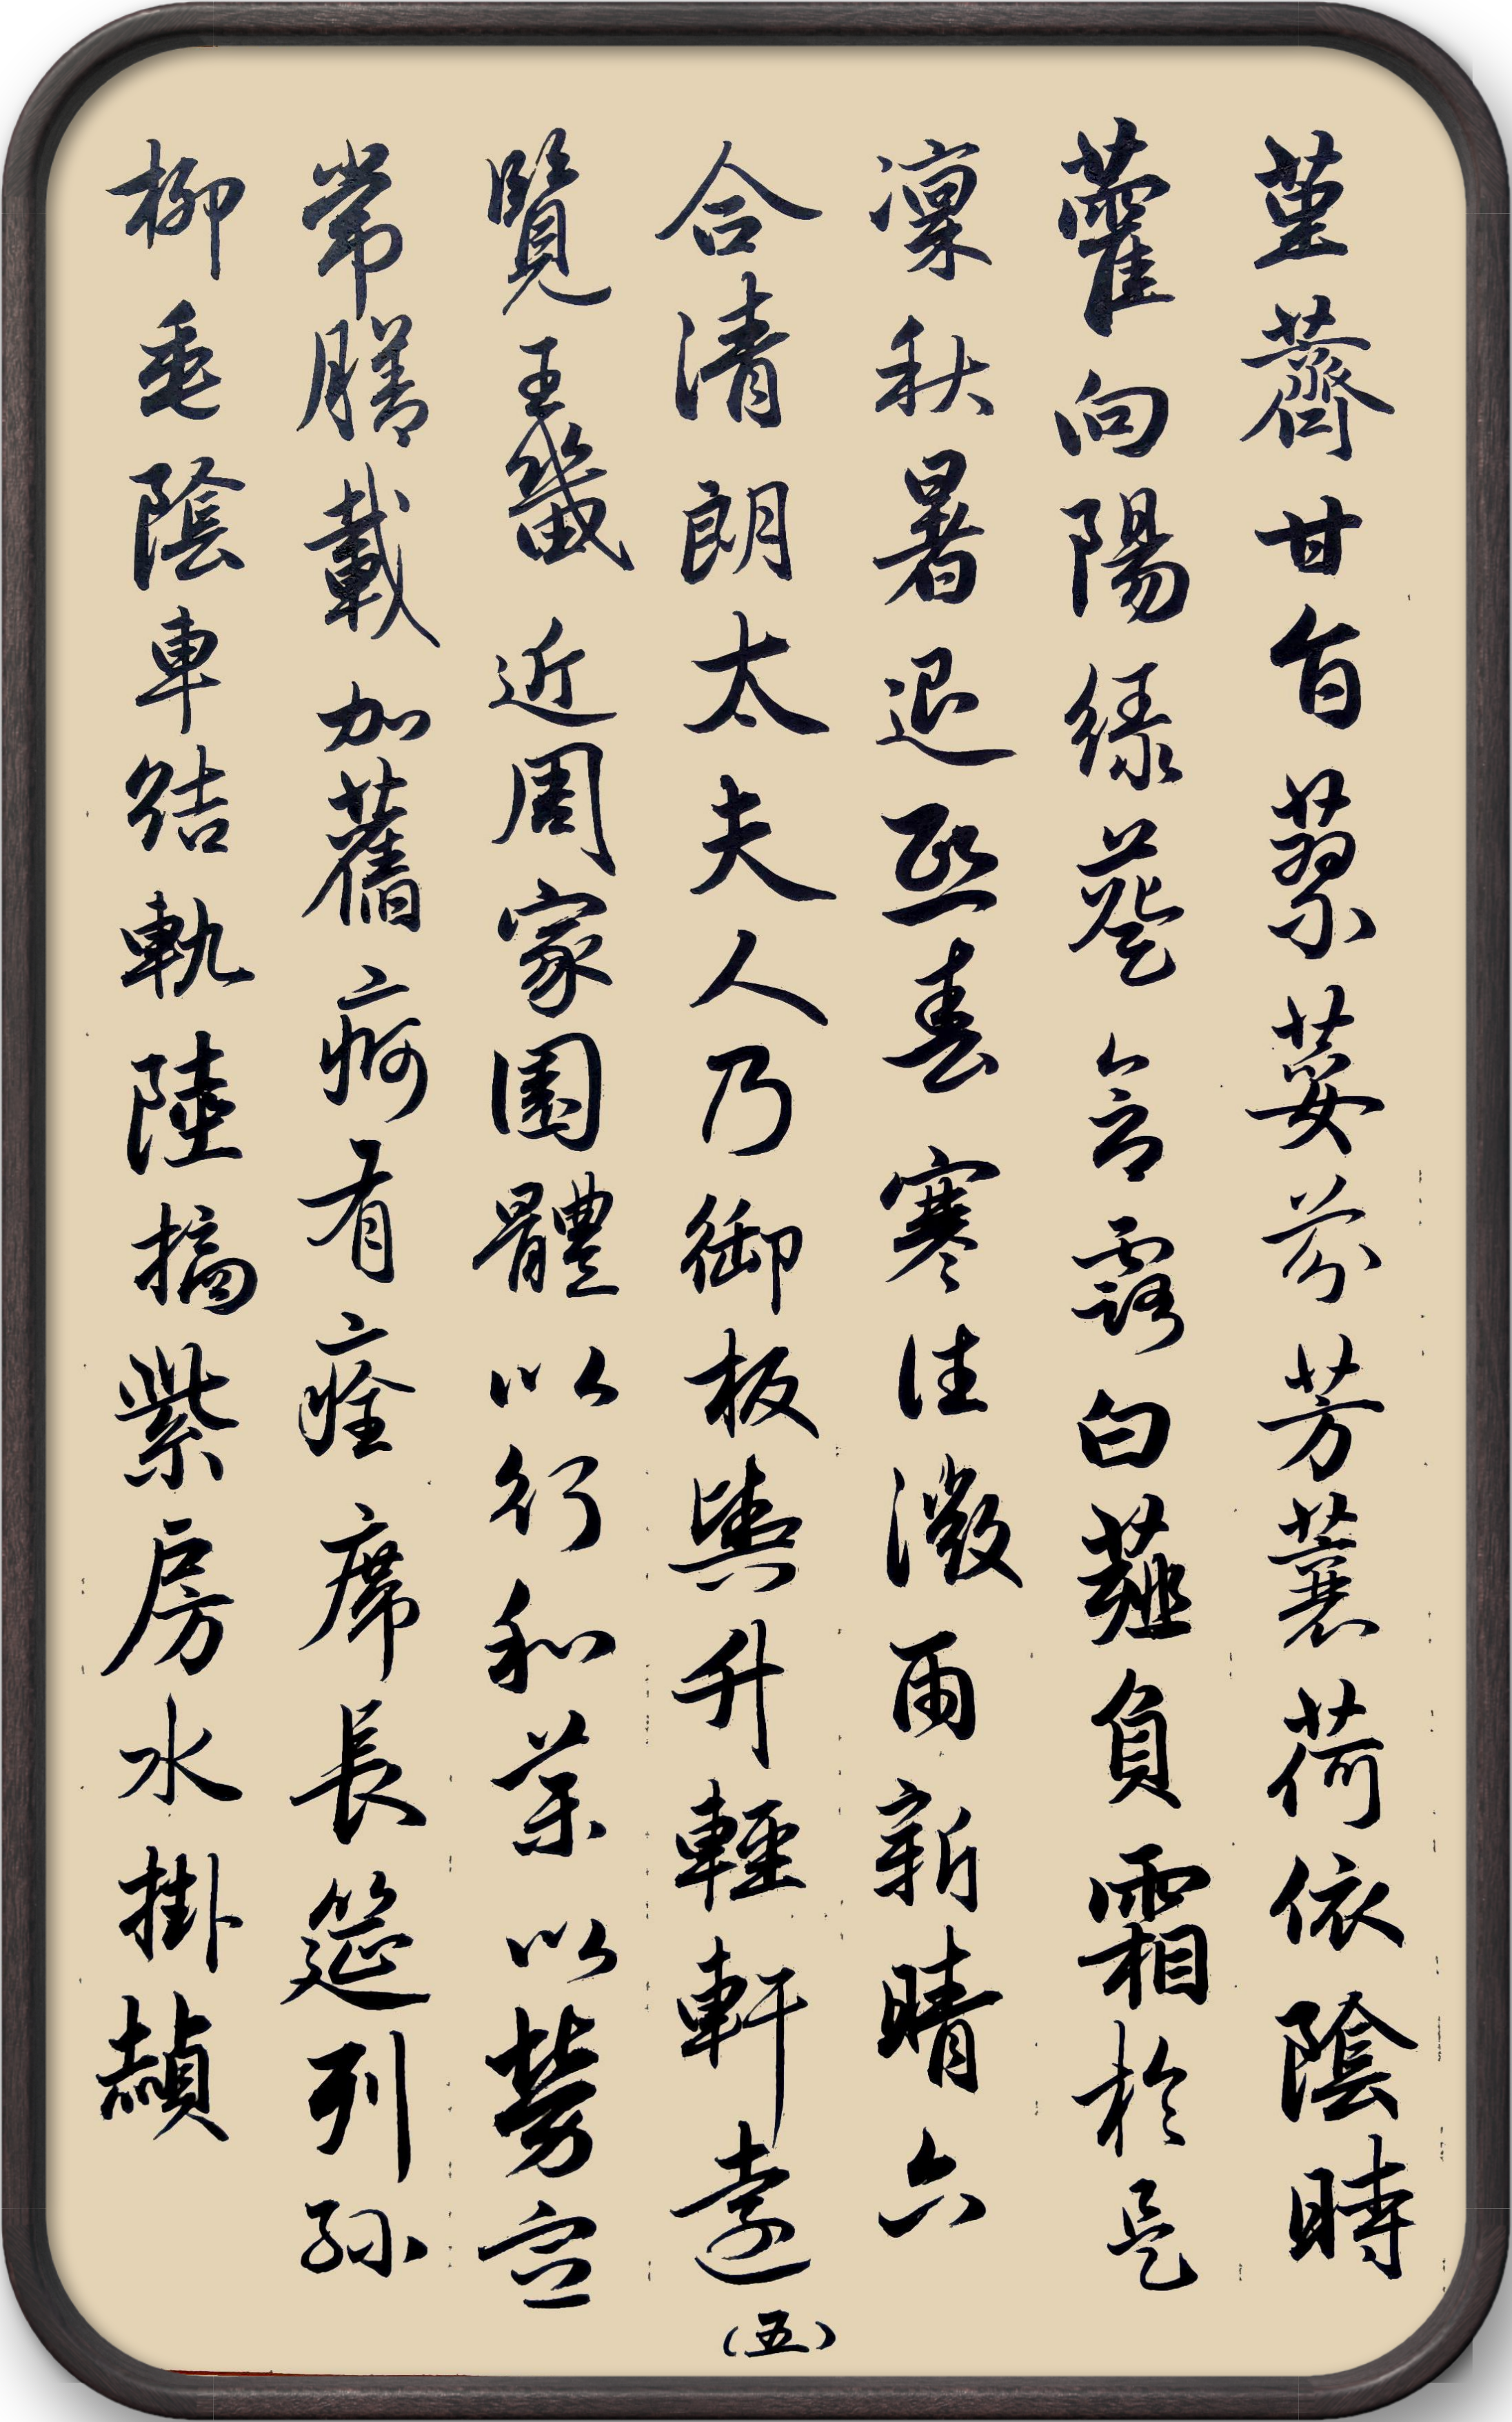 菫薺甘旨蓼荽芬芳蘘荷依陰時
藿向陽綠葵含露白薤負霜於是
凜秋暑退熙春寒往微雨新晴六
合清朗太夫人乃御板輿升輕軒遠
覽王畿近周家園體以行和藥以勞宣
常膳載加舊痾有痊席長筵列孫
柳垂陰車結軌陸摘紫房水掛赬
(五)